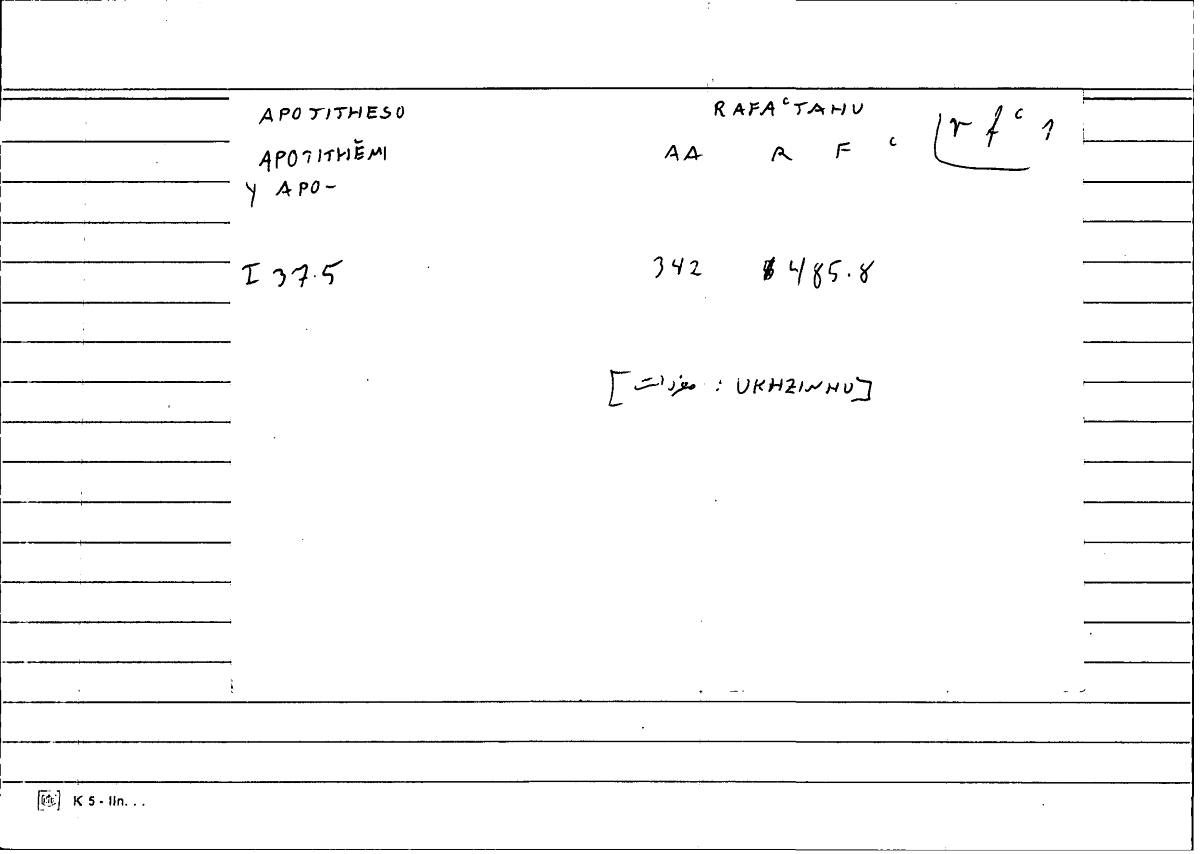 APOTITHESO RAFAᶜTAHU
APOTITHĒMI AA R F ᶜ r f ᶜ 1
Y APO-
I 37.5 342 485.8
[مفردات : UKHZINHU]
K 5 - lin. . .